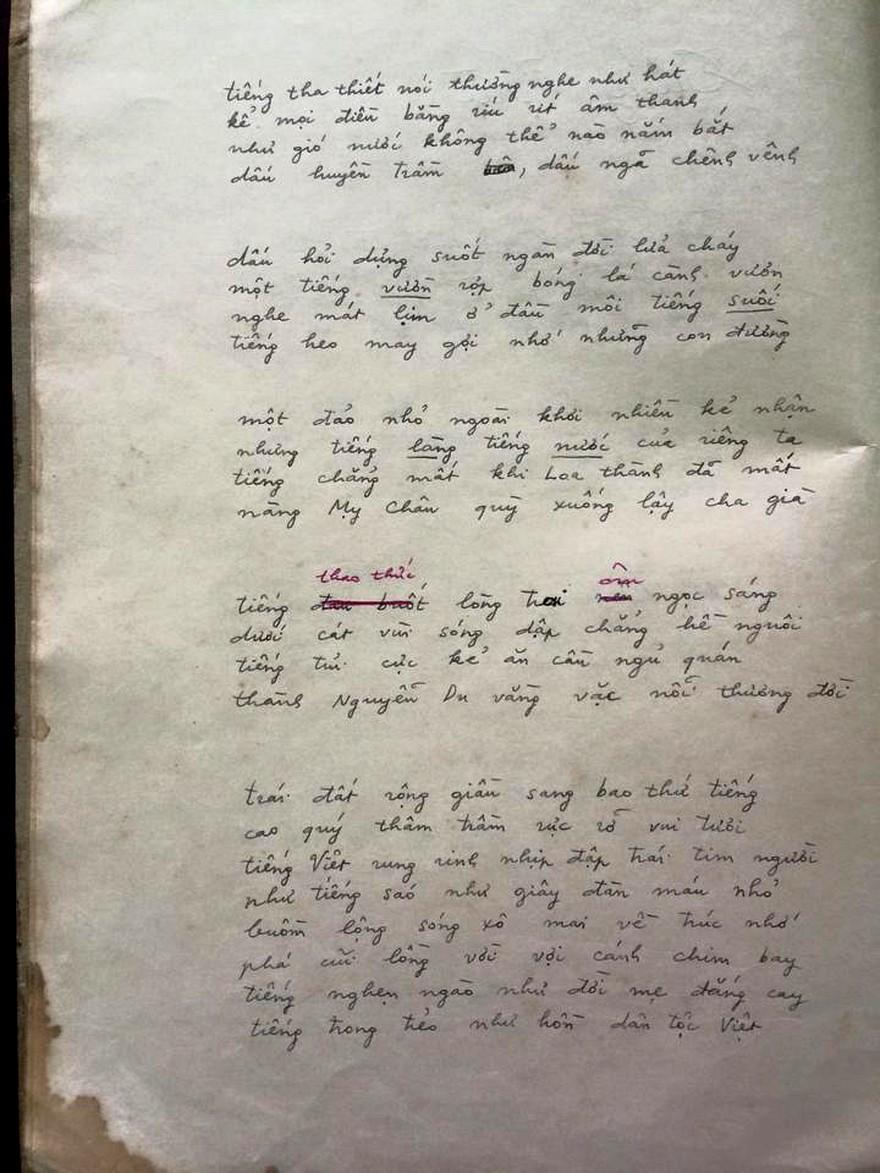 tiếng tha thiết nói thường nghe như hát
kể mọi điều bằng ríu rít âm thanh
như gió nước không thể nào nắm bắt
dấu huyền trầm, dấu ngã chênh vênh
dấu hỏi dựng suốt ngàn đời lửa cháy
một tiếng vườn rợp bóng lá cành vươn
nghe mát lịm ở đầu môi tiếng suối
tiếng heo may gợi nhớ những con đường
một đảo nhỏ ngoài khơi nhiều kẻ nhận
nhưng tiếng làng tiếng nước của riêng ta
tiếng chẳng mất khi Loa thành đã mất
nàng Mỵ Châu quỳ xuống lậy cha già
thao thức ôm
tiếng đau buốt lòng trai nên ngọc sáng
dưới cát vùi sóng dập chẳng hề nguôi
tiếng tủi cực kẻ ăn cầu ngủ quán
thành Nguyễn Du vằng vặc nỗi thương đời
trái đất rộng giầu sang bao thứ tiếng
cao quý thâm trầm rực rỡ vui tươi
tiếng Việt rung rinh nhịp đập trái tim người
như tiếng sáo như giây đàn máu nhỏ
buồm lộng sóng xô mai về trúc nhớ
phá cũi lồng vời vợi cánh chim bay
tiếng nghẹn ngào như đời mẹ đắng cay
tiếng trong trẻo như hồn dân tộc Việt